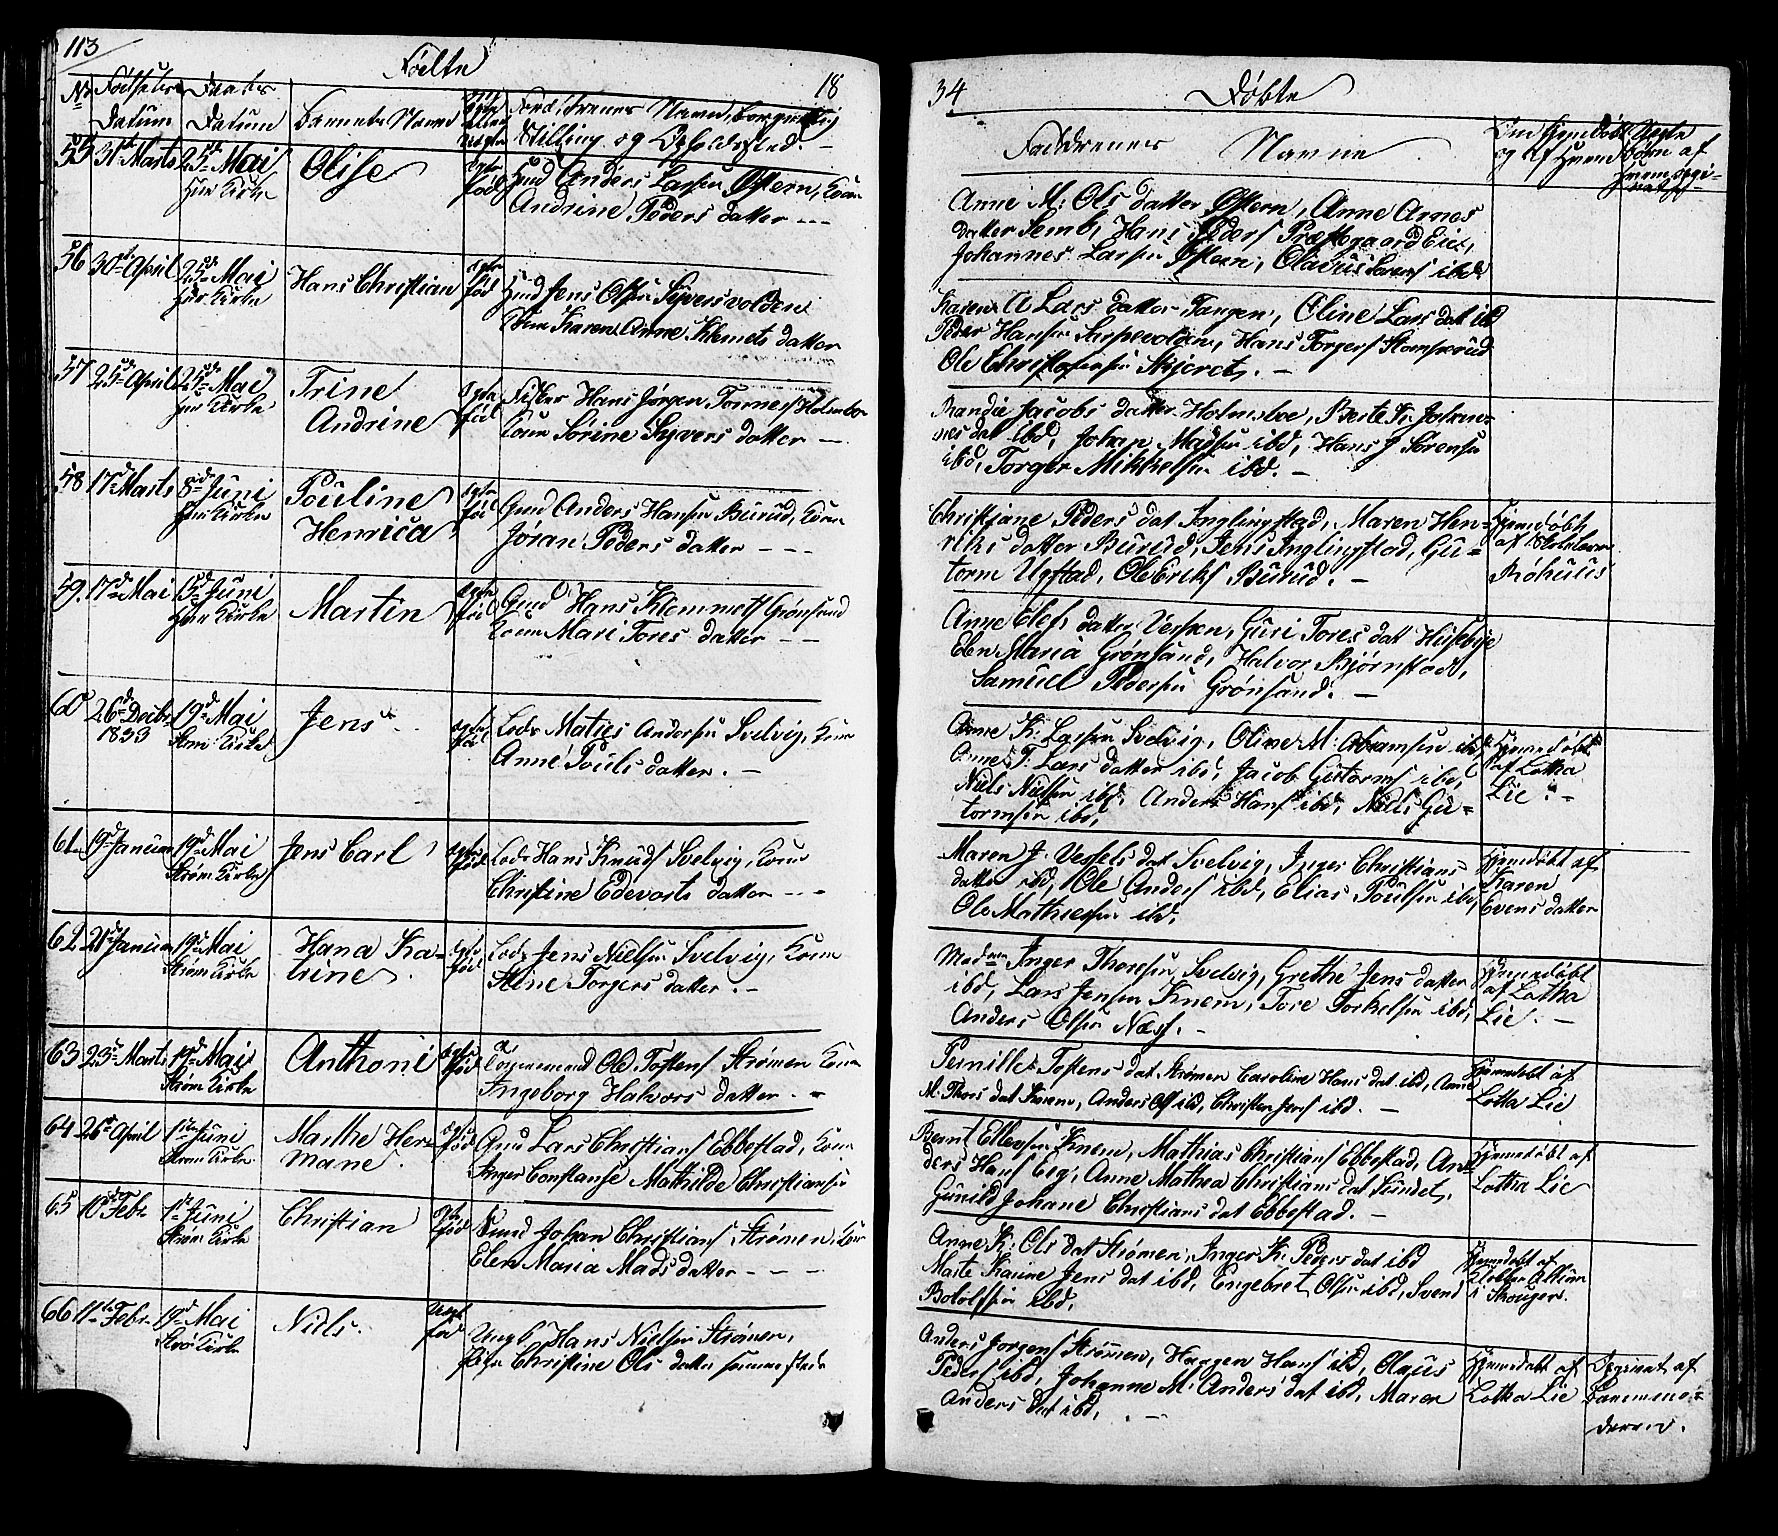 113
Födte
18
No Födsels Datum
Daabs Datum
Barnets Navn
Forældrenes Navne, Borgerlig
Stilling og Opholdssted. -
55 31te Marts 25de Mai Hur Kirke
Olise
Ægte fød
Gmd Anders Larsen Østern, Kone
Andrine Peders datter ---
56 30te April 25de Mai Hur Kirke
Hans Christian
Ægte fød
Hmd Jens Olsen Syversvolden
Kone Karen Anne Klemets datter
57 25de April 25de Mai Hur Kirke
Trine
Andrine
Ægte fød
Hans Jørgen Tonnes
Kone Sørine Syvers datter —
58 17de Marts 8de Juni Hur Kirke
Pouline
Henrica
Ægte fød
Gmd Anders Hansen Burud, Kone
Jøran Peders datter ---
59. 17de Mai Juni Hur Kirke
Martin
Ægte fød
Gmd Hans Klemmets Grønsand
Kone Mari Tores datter --
60 26de Decbr 1833 19de Mai Strøm Kirke
Jens
Ægte fød
Lods Maties Andersen Svelvig, Kone
Anne Pouls datter. —
61 19de Januar 19de Mai Strøm Kirke
Jens Carl
Ægte fød
Lods Hans Knuds Svelvig, Kone
Christine Edevarts datter --
62 21de Januar 19de Mai Strøm Kirke
Hana Ka-
trine
Ægte fød
Lods Jens Nielsen Svelvig, Kone
Stine Torgers datter. —
63 23de Marts 19de Mai Strøm Kirke
Anthoni
Ægte fød
Ole Tostens Strømen Kone
Ingeborg Halvors datter. —
64 26de April 1ste Juni Strøm Kirke
Marthe Her-
mane.
Ægte fød
Gmd Lars Christians Ebbestad, Kone
Inger Constanse Mathilde Christiansen
65 10de Febr 1ste Juni Strøm Kirke
Christian
Ægte fød
Johan Christians Strømen, Kone
Elen Maria Mads datter ---
66 11te Febr. 19de Mai Strøm Kirke
Niels.
Uægte fød
Ungk Hans Nielsen Strømen,
Pige Christine Ols datter sammesteds
34
Døbte
Faddernes Navne
Om hjemdøbt og af hvem
Uægte børn af hvem begivet
Anne M: Ols datter Østern, Anne Arnes
datter Semb, Hans Peders Præstegaard Eiet,
Johannes Larsen Østern, Olavus Sørens ibd
Karen A Lars datter Tangen, Oline Lars dat ibd
Peder Hansen Sarpevolden, Hans Torgers Stomperud
Ole Christofersen Skjeret. —
Randie Jacobs datter Holmsboe, Berte K: Johan-
nes dat ibd, Johan Madsen ibd, Hans J Sørensen
ibd, Torger Mikkelsen ibd. —
Christjane Peders dat Inglingstad, Maren Hen-
riks datter Burud, Jens Inglingstad, Gu-
torm Ugstad, Ole Eriks Burud. —
Hjemdøbt
af
Røhuus
Anne Olefs datter Versøen, Guri Tores dat
Elen Maria Grønsand, Halvor Bjørnstad,
Samuel Pedersen Grønsand. —
Anne K: Larsen Svelvig, Oline M: Abramsen ibd
Anne T: Lars datter ibd, Jacob Gutorms ibd,
Niels Nielsen ibd, Anders Hans ibd, Niels Gu-
tormsen ibd,
Hjemdøbt
af Lotha
Lie. —
Maren J: Vessels dat Svelvig, Inger Christians
datter ibd, Ole Anders ibd, Elias Poulsen ibd,
Ole Mathiesen ibd.
Hjemdøbt af
Karen
Evens datter
Madme Inger Thoresen Svelvig, Grethe Jens datter
ibd, Lars Jensen Knem, Tore Torkelsen ibd,
Anders Olsen Næss. —
Hjemdøbt
af Lotha
Lie. —
Pernille Tostens dat Strømen Caroline Hans dat ibd, Anne
M. Thors dat Knem, Anders Ols ibd, Christen Jens ibd. —
Hjemdøbt af
Lotha Lie
Bernt Ellevsen Knem, Mathias Christians Ebbestad, An-
ders Hans Eeg, Anne Mathea Christians dat Sundet,
Gunild Johane Christians dat Ebbestad. —
Hjemdøbt af
Lotha Lie
Anne K: Ols dat Strømen, Inger K: Peders dat ibd
Marte Karine Jens dat ibd, Engebret Olsen ibd, Svend
Botolfsen ibd.
Hjemdøbt af
Klokker
i Skouger.
Anders Jorgens Strømen, Haagen Hans ibd, Olaus
Peders ibd, Johanne M: Anders dat ibd, Maren
Anders dat ibd, . —
Hjemdøbt af
Lotha Lie
Begivet af
Barnemo-
deren.